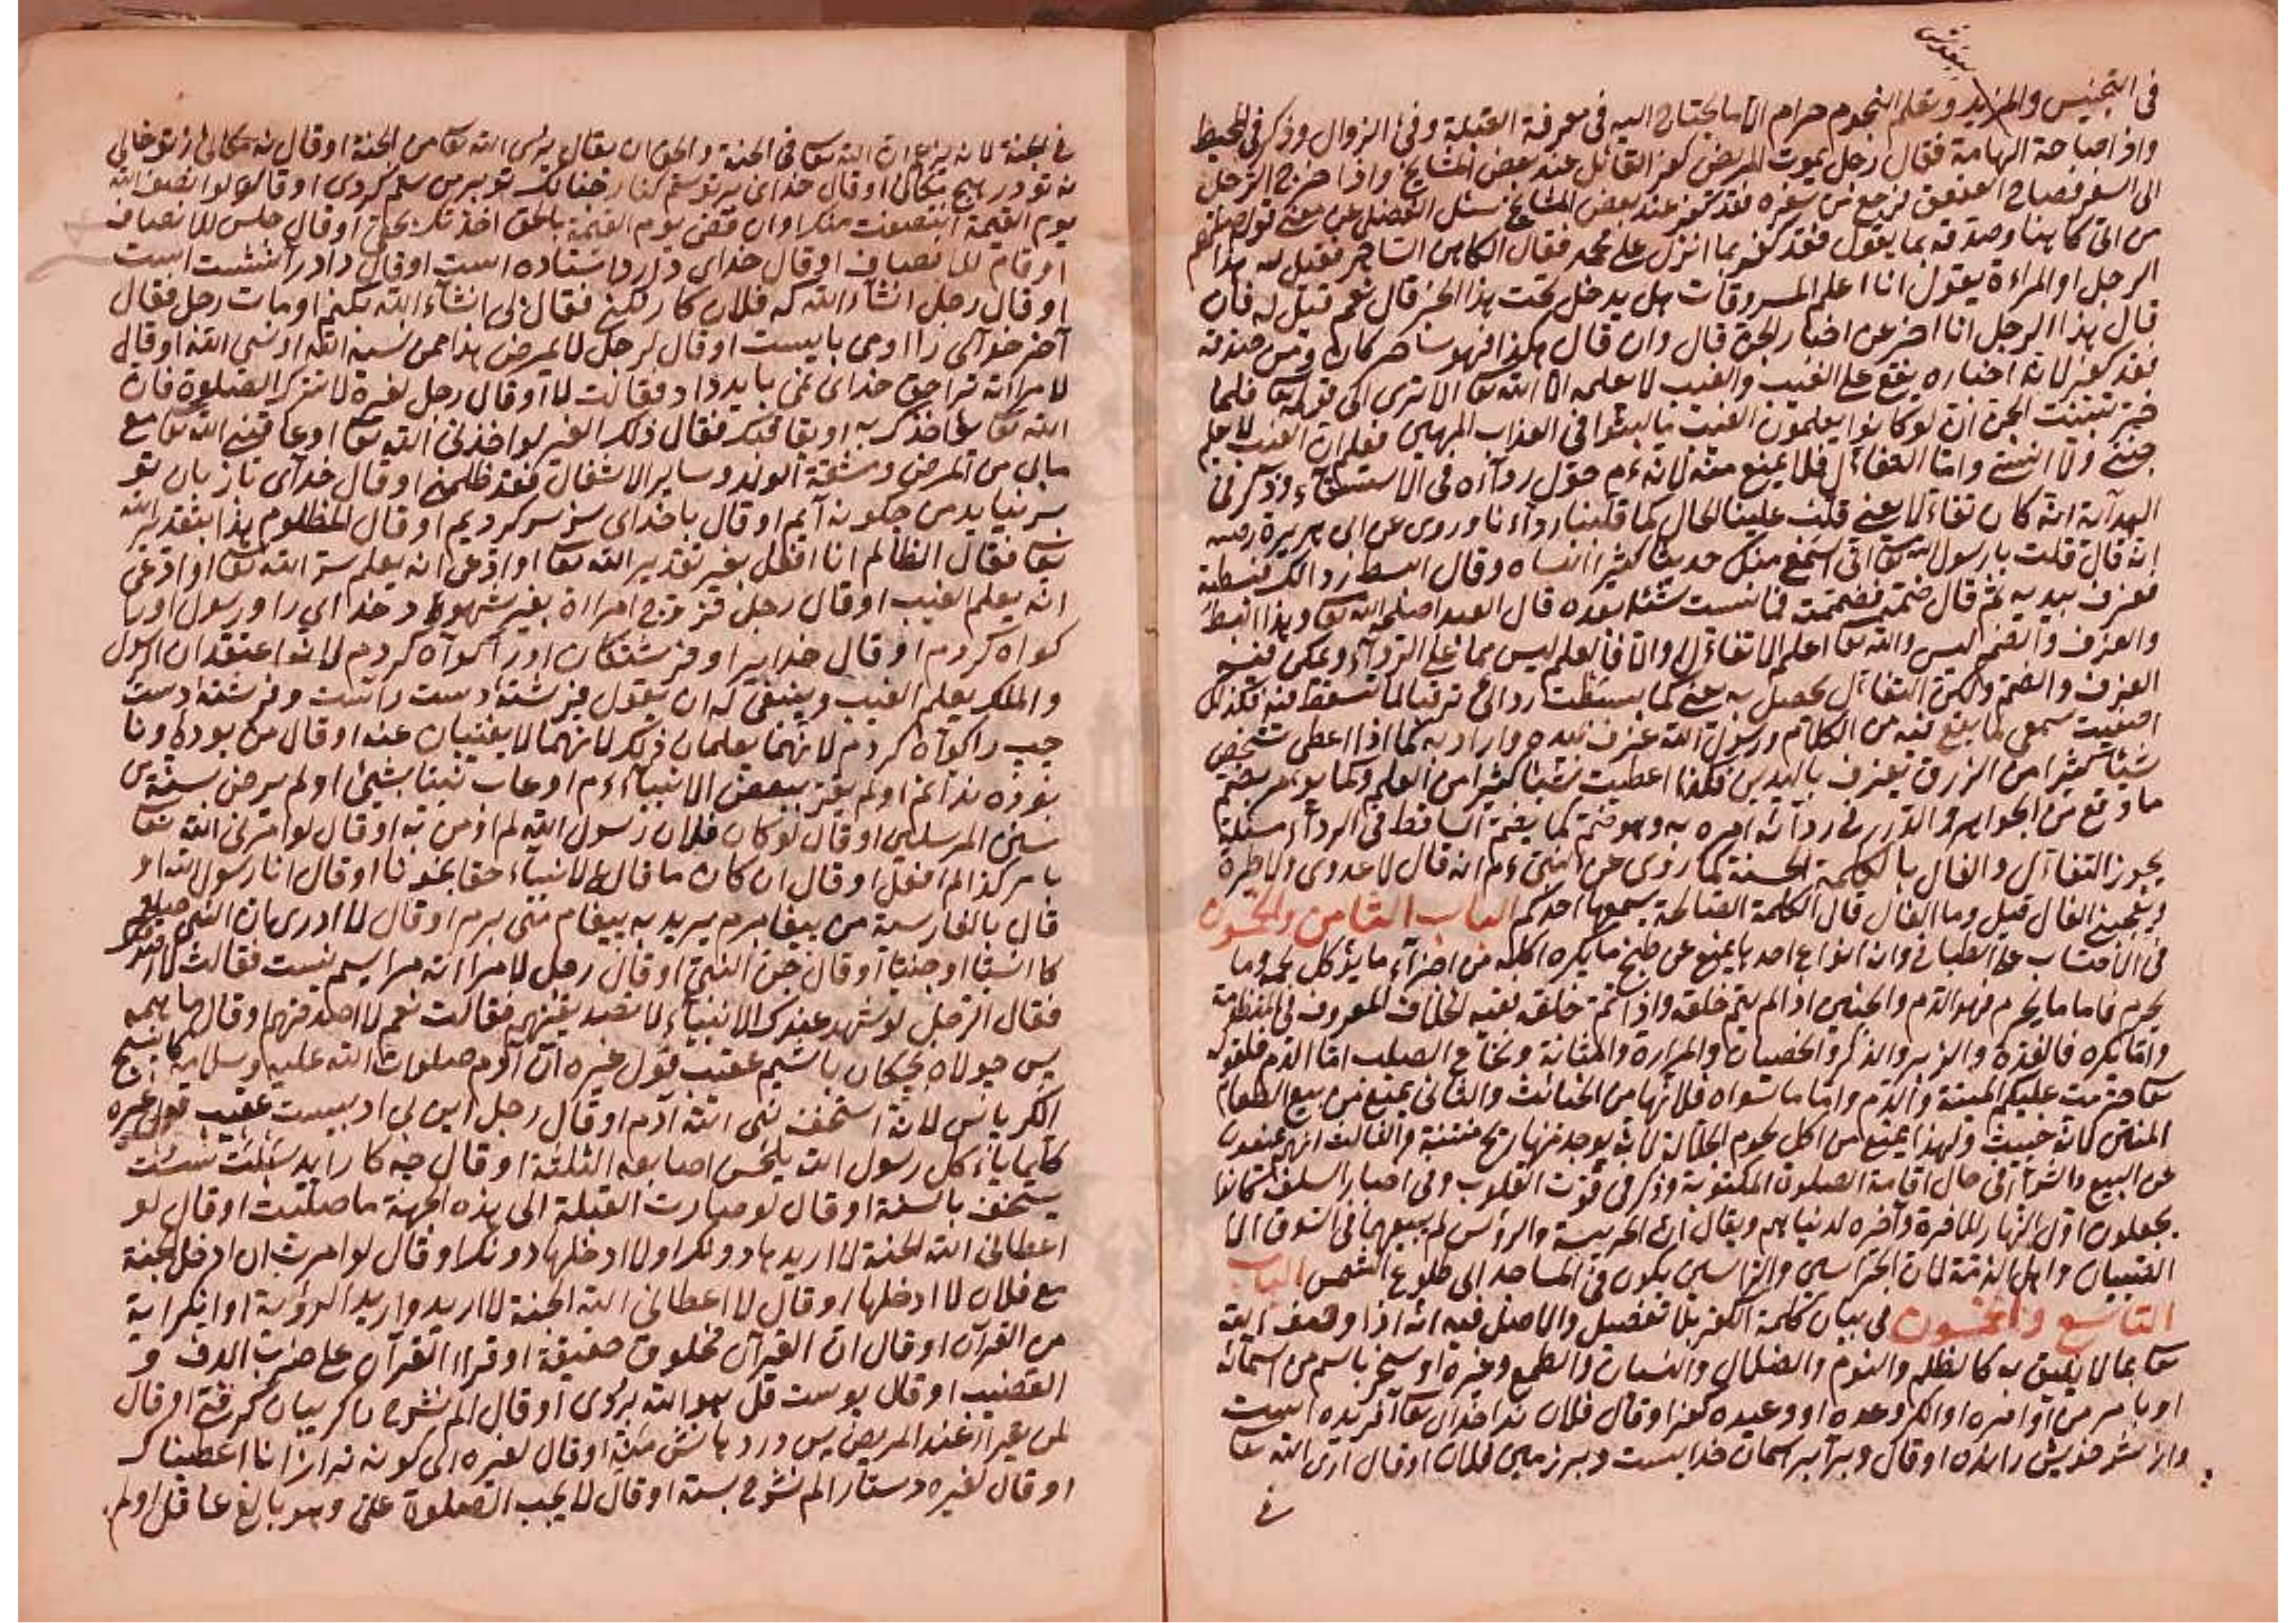 في التجنيس والمزيد وتعلم النجوم حرام الا ما يحتاج اليه في معرفة القبلة وفئ الزوال وذكر في المحيط
واذا صاحة الهامة فقال رجل يموت المريض كفر القائل عند بعض المشايخ واذا خرج الرجل
الى السفر فصاح العقعق فرجع من سفره فقد كفر عند بعض المشايخ سئل الفضلي عن معنى قوله صلعم
من اتى كاهنا وصدقه بما يقول فقد كفر بما انزل على محمد فقال الكاهن الساحر فقيل له هذا
الرجل او المراءة يقول انا اعلم المسروقات هل يدخل تحت هذا الخبر قال نعم قيل له فان
قال هذا الرجل انا اخبر عن اخبار الجن قال وان قال هكذا فهو ساحر كاهن ومن صدقه
فقد كفر لانه اخباره يقع على الغيب والغيب لا يعلمه الا الله تعا الا ترى الى قوله تعا فلما
خر تبينت الجن ان لو كانوا يعلمون الغيب ما لبثوا في العذاب المهين فعلم ان الغيب لا يعلم
جني ولا انسي واما التفاءل فلا يمنع منه لانه عم حول رداءه في الاستسقاء وذكر في
الهداية انه كان تفاءلا يعني قلب علينا الحال كما قلبنا رداءنا وروى عن ابي هريرة رضه
انه قال قلت يا رسول الله اني اسمع منك حديثا كثيرا انساه وقال ابسط رداءك فبسطته
فغرف بيديه ثم قال ضمه فضممت فما نسيت شيئا بعده قال العبد اصلحه الله تعا وهذا البسط
والغرف والضم ليس والله تعا اعلم الا تفاءلا والا فالعلم ليس مما على الرداء
الغرف والضم ولكن التفاءل يحصل به يعني كما بسطت ردائي ترقبا لما تسقط فيه فكذلك
اصغيت سمعي لما يقع فيه من الكلام ورسول الله غرف بيده واراد به كما اذا اعطى شخص
شيئا كثيرا من الرزق يغرف باليدين فكذا اعطيت شيئا كثيرا من العلم وكما يؤمر بضم
ما وقع من الجواهر والدرر في ردائه امره به وهو ضمه كما يضم الساقط في الرداء مسئلة
يجوز التفاءل والفال بالكلمة الحسنة كما روى عن النبي عم انه قال لا عدوى ولا طيرة
ويعجبني الفال قيل وما الفال قال الكلمة الصالحة يسمعها احدكم الباب الثامن والخمسون
في الاحتساب على الطباخ وانه انواع احدها يمنع عن طبخ ما يكره اكله من اجزاء ما يؤكل لحمه وما
يحرم فاما ما يحرم فهو الدم والجنين اذا لم يتم خلقه واذا تم خلقه ففيه الخلاف المعروف في المنظومة
واما يكره فالغدة والزبر والذكر والخصيتان والمرارة والمثانة ونخاع الصلب اما الدم فلقوله
تعا حرمت عليكم الميتة والدم واما ما سواه فلانها من الخبائث والثاني يمنع من بيع الطعام
المنتن لانه خبيث ولهذا يمنع من اكل لحوم الجلالة لانه يوجد منها ريح منتنة والثالث انهم يمنعون
عن البيع والشراء في حال اقامة الصلوة المكتوبة وذكر في قوت القلوب وفي اخبار السلف كانوا
يجعلون اول النهار للاخرة واخره لدنياهم ويقال ان الهريسة والرؤس لم يبيعها في السوق الا
الصبيان واهل الذمة لان الهراسين والرواسين يكون في المساجد الى طلوع الشمس الباب
التاسع والخمسون في بيان كلمة الكفر بلا تفصيل والاصل فيه انه اذا وصف الله
تعا بما لا يليق به كالظلم والنوم والضلال والنسيان والطمع وغيره او سخر باسم من اسمائه
او بامر من اوامره او انكر وعده او وعيده كفر او قال فلان را خداى تعا آفريده است
واز پيش خويش رانده او قال وبر آسمان خدايست وبر زمين فلان او قال ارى الله تعا
في
في الجنة لانه يزعم ان الله تعا في الجنة والحق ان يقال يرى الله تعا من الجنة او قال نه مكاني از تو خالي
نه تو در هيچ مكاني او قال خداى بر تو ستم كناد چنانك تو بر من ستم كردى او قال لو انصف الله
يوم القيمة انتصفت منك او ان قضى يوم القيمة بالحق اخذتك بحقي او قال جلس للانصاف
او قام للانصاف او قال خداى داد را استاده است او قال داد را نشسته است
او قال رجل انشاء الله كه فلان كار بكني فقال بي انشاء الله بكنم او مات رجل فقال
آخر خداى را او مى بايست او قال لرجل لا يمرض هذا ممن نسيه الله او نسي الله او قال
لامراته ترا حق خداى نمى بايد داد فقالت لا او قال رجل لغيره لا تترك الصلوة فان
الله تعا يؤاخذك به او يعاقبك فقال ذلك الغير لو اخذني الله تعا او عاقبني الله تعا مع
مابي من المرض ومشقة الولد وساير الاشغال فقد ظلمني او قال خداى تا زبان تو
بر نيايد من چكونه آيم او قال با خداى سر بسر كرديم او قال المظلوم هذا بتقدير الله
تعا فقال الظالم انا افعل بغير تقدير الله تعا او ادعى انه يعلم سر الله تعا او ادعى
انه يعلم الغيب او قال رجل تزوج امراة بغير شهود خداى را ورسول او را
كواه كردم او قال خدايرا وفرشتكان او را كواه كردم لانه اعتقد ان الرسول
والملك يعلم الغيب وينبغي له ان يقول فرشته دست راست وفرشته دست
چپ را كواه كردم لانهما يعلمان ذلك لانهما لا يغيبان عنه او قال من بوده ونا
بوده بدانم او لم يقر ببعض الانبياء عم او عاب نبيا بشئ او لم يرض بسنة من
سنن المرسلين او قال لو كان فلان رسول الله لم اؤمن به او قال لو امرني الله تعا
بامر كذا لم افعل او قال ان كان ما قال الانبياء حقا نجونا او قال انا رسول الله او
قال بالفارسية من پيغامبرم يريد به پيغام مى برم او قال لا ادري ان النبي صلعم
كان انسيا او جنيا او قال جن النبي او قال رجل لامراته مرا سيم نيست فقالت لا اصدقك
فقال الرجل لو شهد عندك الانبياء لا تصدقينهم فقالت نعم لا اصدقهم او قال ما همه
پس جولاه بچكان باشيم عقيب قول غيره ان آدم صلوات الله عليه وسلامه كان ينسج
الكرباس لانه استخف نبي الله آدم او قال رجل اين بى ادبيست عقيب قول غيره
كان ياكل رسول الله يلحس اصابعه الثلثة او قال چه كار آيد سبلت پست
يستخف بالسنة او قال لو صارت القبلة الى هذه الجهة ما صليت او قال لو
اعطاني الله الجنة لا اريدها دونك او لا ادخلها دونك او قال لو امرت ان ادخل الجنة
مع فلان لا ادخلها او قال لا اعطاني الله الجنة لا اريد واريد الرؤية او انكر اية
من القران او قال ان القرآن مخلوق حقيقة او قراء القرآن على ضرب الدف و
القضيب او قال پوست قل هو الله بردى او قال الم نشرح را كريبان كرفتى او قال
لمن يقرا عند المريض يس در دهانش منه او قال لغيره اى كوته تر از انا اعطيناك
او قال لغيره دستار الم نشرح بسته او قال لا يجب الصلوة على وهو بالغ عاقل او لم